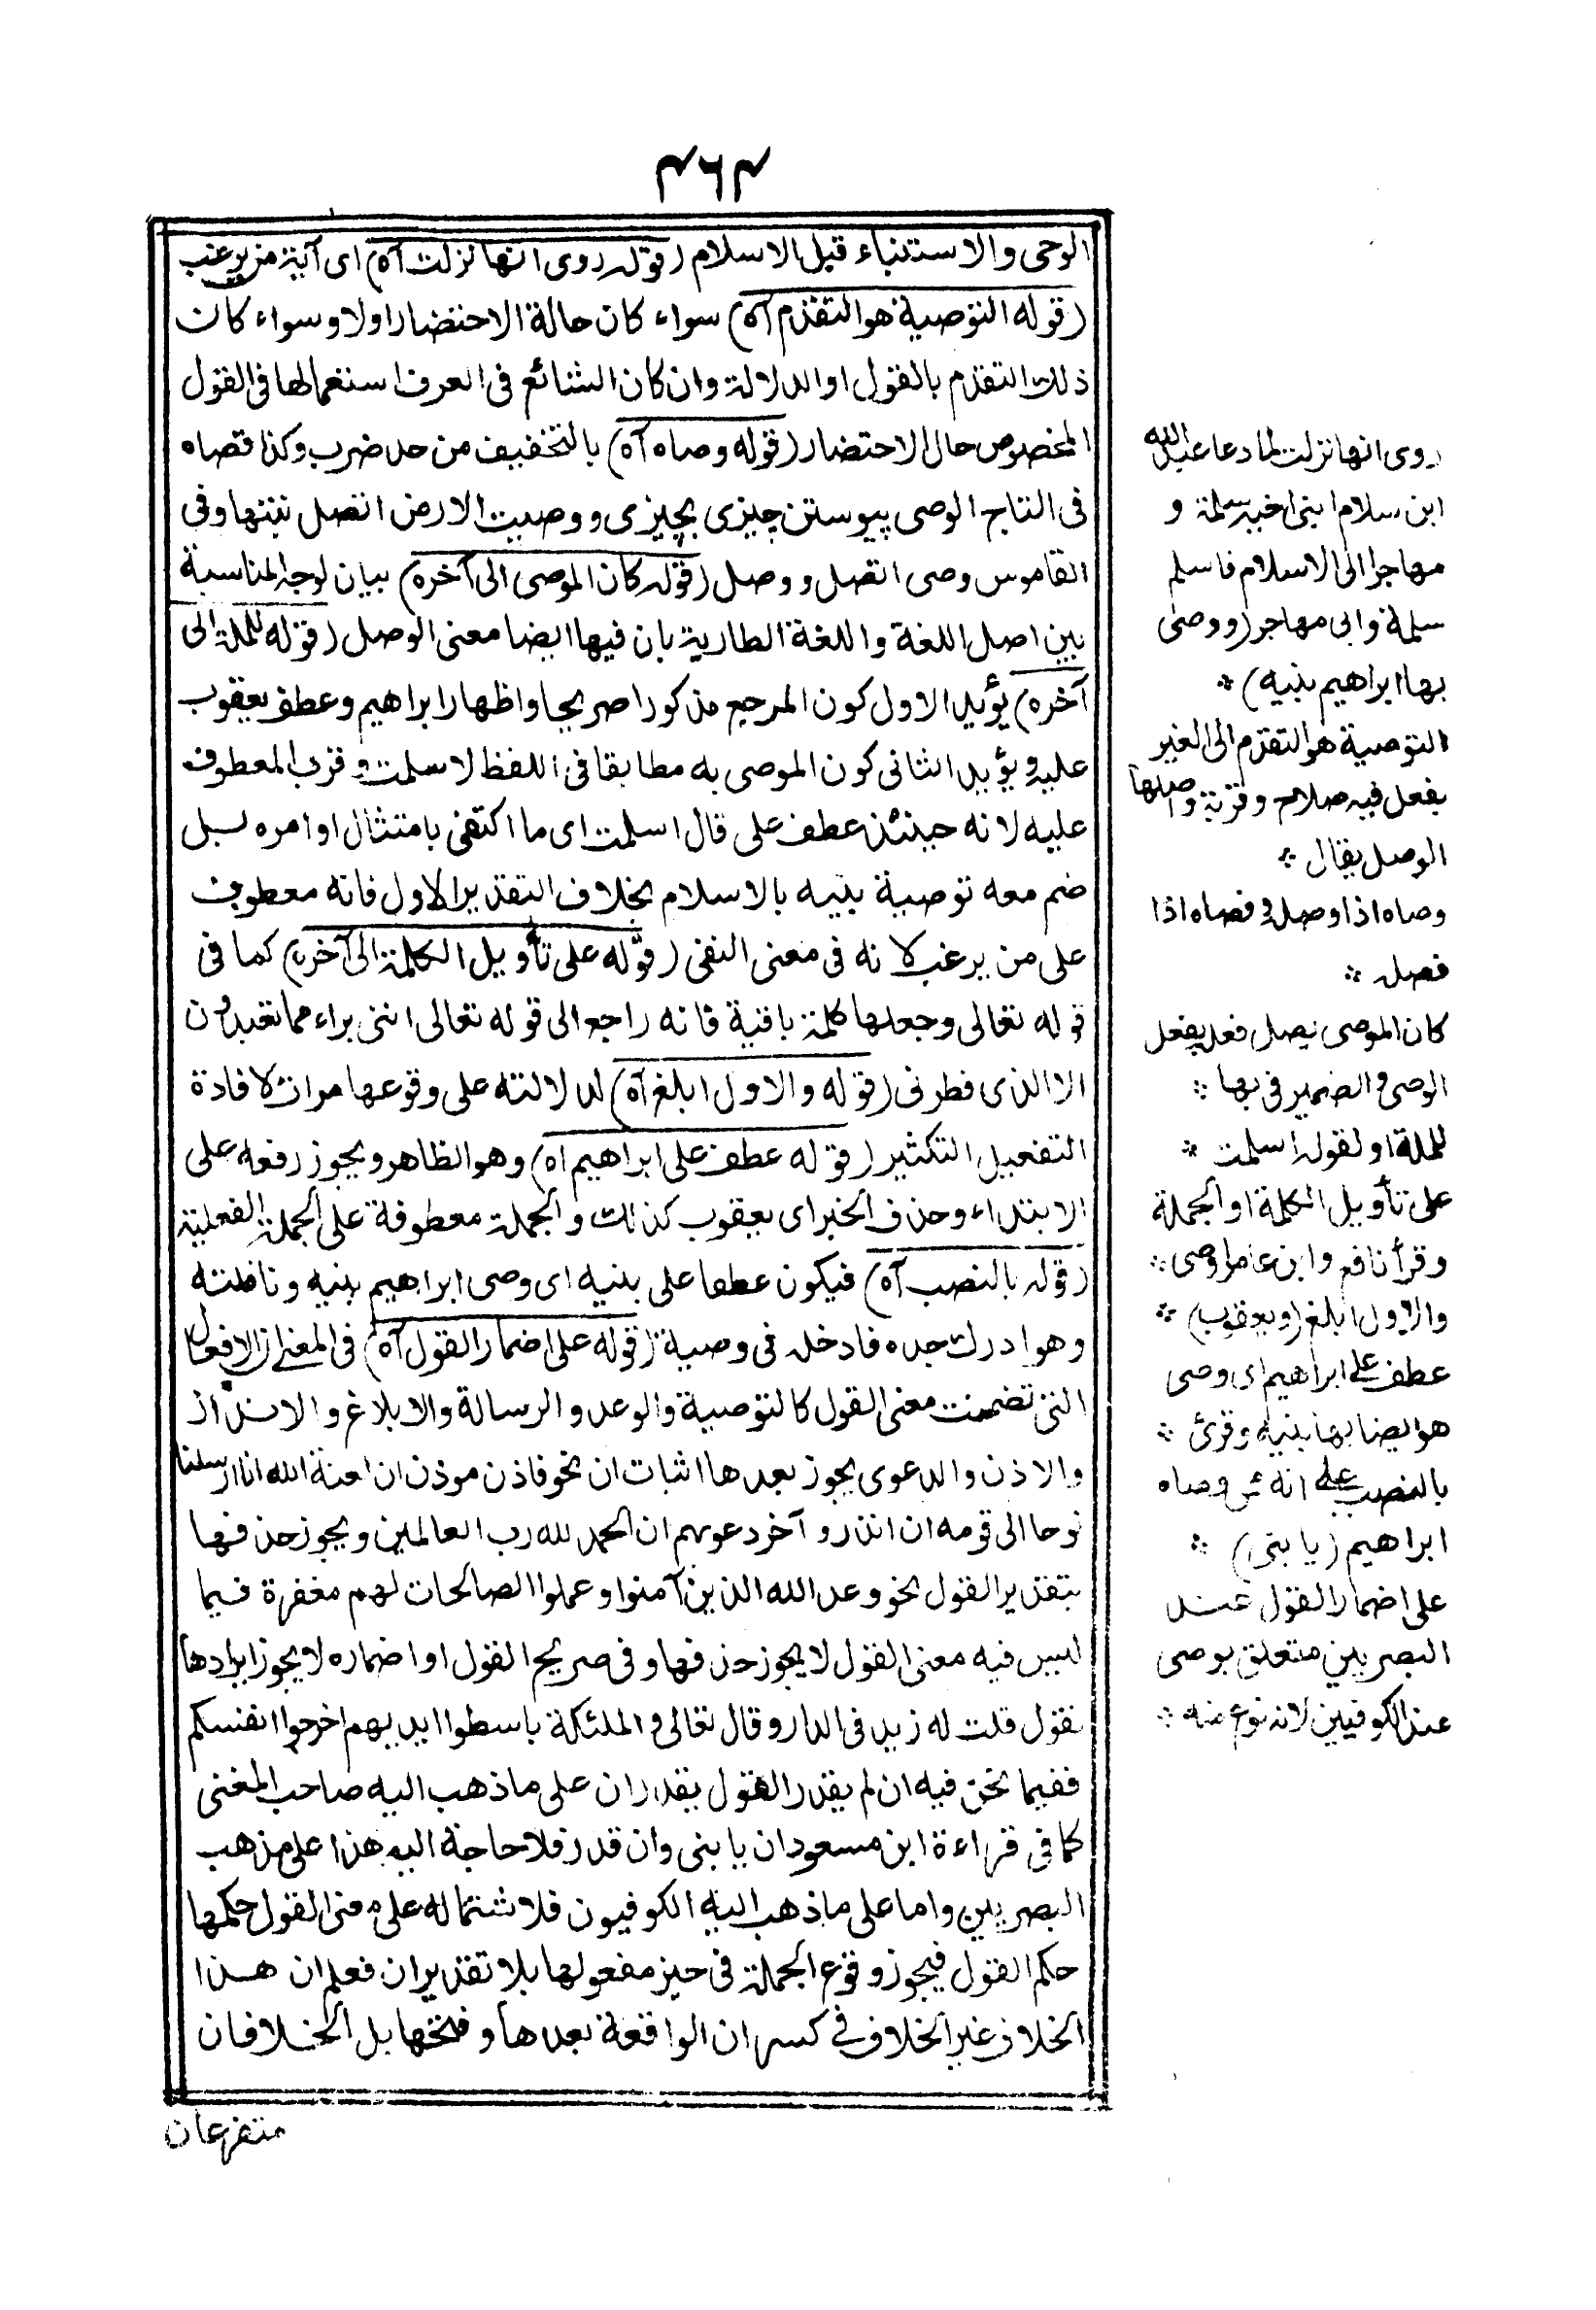 ٤٦٤
الوحى والاستنباء قبل الاسلام (قوله روى انها نزلت آه) اى آية من يرغب
(قوله التوصية هو التقدم آه) سواء كان حالة الاحتضار اولا وسواء كان
ذلك التقدم بالقول او الدلالة وان كان الشائع فى العرف استعمالها فى القول
المخصوص حال الاحتضار (قوله وصاه آه) بالتخفيف من حد ضرب وكذا فصاه
فى التاج الوصى پيوستن چيزى بچيزى ووصيت الارض اتصل نبتها وفى
القاموس وصى اتصل ووصل (قوله كان الموصى الى آخره) بيان لوجه المناسبة
بين اصل اللغة واللغة الطارية بان فيها ايضا معنى الوصل (قوله للملة الى
آخره) يؤيد الاول كون المرجع مذكورا صريحا واظهار ابراهيم وعطف يعقوب
عليه ويؤيد الثانى كون الموصى به مطابقا فى اللفظ لاسلمت وقرب المعطوف
عليه لانه حينئذ عطف على قال اسلمت اى ما اكتفى بامتثال اوامره بل
ضم معه توصية بنيه بالاسلام بخلاف التقدير الاول فانه معطوف
على من يرغب لانه فى معنى النفى (قوله على تأويل الكلمة الى آخره) كما فى
قوله تعالى وجعلها كلمة باقية فانه راجع الى قوله تعالى اننى براء مما تعبدون
الا الذى فطرنى (قوله والاول ابلغ آه) لدلالته على وقوعها مرات لافادة
التفعيل التكثير (قوله عطف على ابراهيم اه) وهو الظاهر ويجوز رفعه على
الابتداء وحذف الخبر اى يعقوب كذلك والجملة معطوفة على الجملة الفعلية
(قوله بالنصب آه) فيكون عطفا على بنيه اى وصى ابراهيم بنيه ونافلته
وهو ادرك جده فادخله فى وصية (قوله على اضمار القول آه) فى المغنى ان الافعال
التى تضمنت معنى القول كالتوصية والوعد والرسالة والابلاغ والانذار
والاذن والدعوى يجوز بعدها اثبات ان نحو فاذن موذن ان لعنة الله انا ارسلنا
نوحا الى قومه ان انذر وآخر دعويهم ان الحمد لله رب العالمين ويجوز حذفها
بتقدير القول نحو وعد الله الذين آمنوا وعملوا الصالحات لهم مغفرة فيما
ليس فيه معنى القول لا يجوز حذفها وفى صريح القول او اضماره لا يجوز ايرادها
تقول قلت له زيد فى الدار وقال تعالى و الملئكة باسطوا ايديهم اخرجوا انفسكم
ففيما نحن فيه ان لم يقدر القول يقدر ان على ما ذهب اليه صاحب المغنى
كما فى قراءة ابن مسعود ان يا بنى وان قدر فلا حاجة اليه هذا على مذهب
البصريين واما على ما ذهب اليه الكوفيون فلاشتماله على معنى القول حكمها
حكم القول فيجوز وقوع الجملة فى حيز مفعولها بلا تقدير ان فعلم ان هذا
الخلاف غير الخلاف فى كسر ان الواقعة بعدها وفتحها بل الخلافان
متفرعان
روى انها نزلت لما دعا عبد الله
ابن سلام ابنى اخيه سلمة و
مهاجرا الى الاسلام فاسلم
سلمة وابى مهاجر (ووصى
بها ابراهيم بنيه) *
التوصية هو التقدم الى الغير
بفعل فيه صلاح وقربة واصلها
الوصل يقال *
وصاه اذا وصله وفصاه اذا
فصله *
كان الموصى يصل فعله بفعل
الوصى و الضمير فى بها *
للملة او لقوله اسلمت *
على تأويل الكلمة او الجملة
وقرأ نافع وابن عامر اوصى *
والاول ابلغ (ويعقوب) *
عطف على ابراهيم اى وصى
هو ايضا بها بنيه وقرئ *
بالنصب على انه ممن وصاه
ابراهيم (يا بنى) *
على اضمار القول عند
البصريين متعلق بوصى
عند الكوفيين لانه نوع منه *